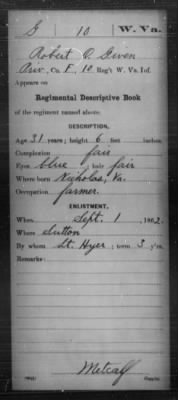 G 10 W. Va.
Robert D. Given
Priv., Co. F, 10 Reg't W. Va. Inf.
Appears on
Regimental Descriptive Book
of the regiment named above.
DESCRIPTION.
Age 31 years; height 6 feet inches.
Complexion fair
Eyes blue; hair fair
Where born Nicholas, Va.
Occupation farmer.
ENLISTMENT.
When Sept. 1, 1862.
Where Sutton
By whom Lt. Hyer; term 3 y'rs.
Remarks:
Metcalf
Copyist.